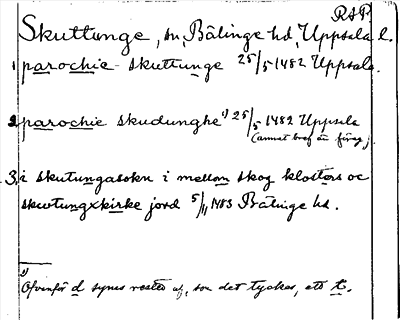 RAP.
Skuttunge, sn, Bälinge hd, Uppsala l.
1 parochie skuttunge 25/5 1482 Uppsala.
2 parochie skudunghe 1) 25/5 1482 Uppsala
(annat bref än föreg.)
3 i skutungasokn i mellom skog klosters oc
skutungxkirke jord 5/11 1483 Bälinge hd.
1) Ofvanför d synes rester af, som det tyckes, ett t.